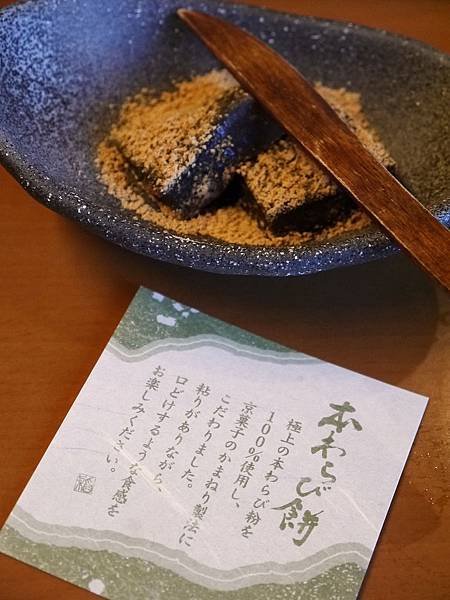 本わらび餅
極上の本わらび粉を
100%使用し、
京菓子のかまねり製法に
こだわりました。
粘りがありながら、
口どけするような食感を
お楽しみください。